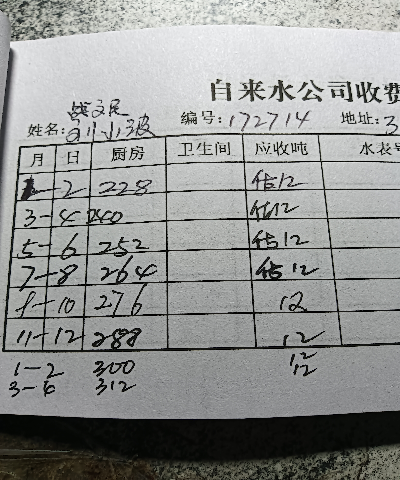 自来水公司收费
姓名: 小波 编号: 172714 地址: 3
月 日 厨房 卫生间 应收吨 水表号
1-2 228 估12
3-4 240 估12
5-6 252 估12
7-8 264 估12
9-10 276 12
11-12 288 12
1-2 300 12
3-4 312 12